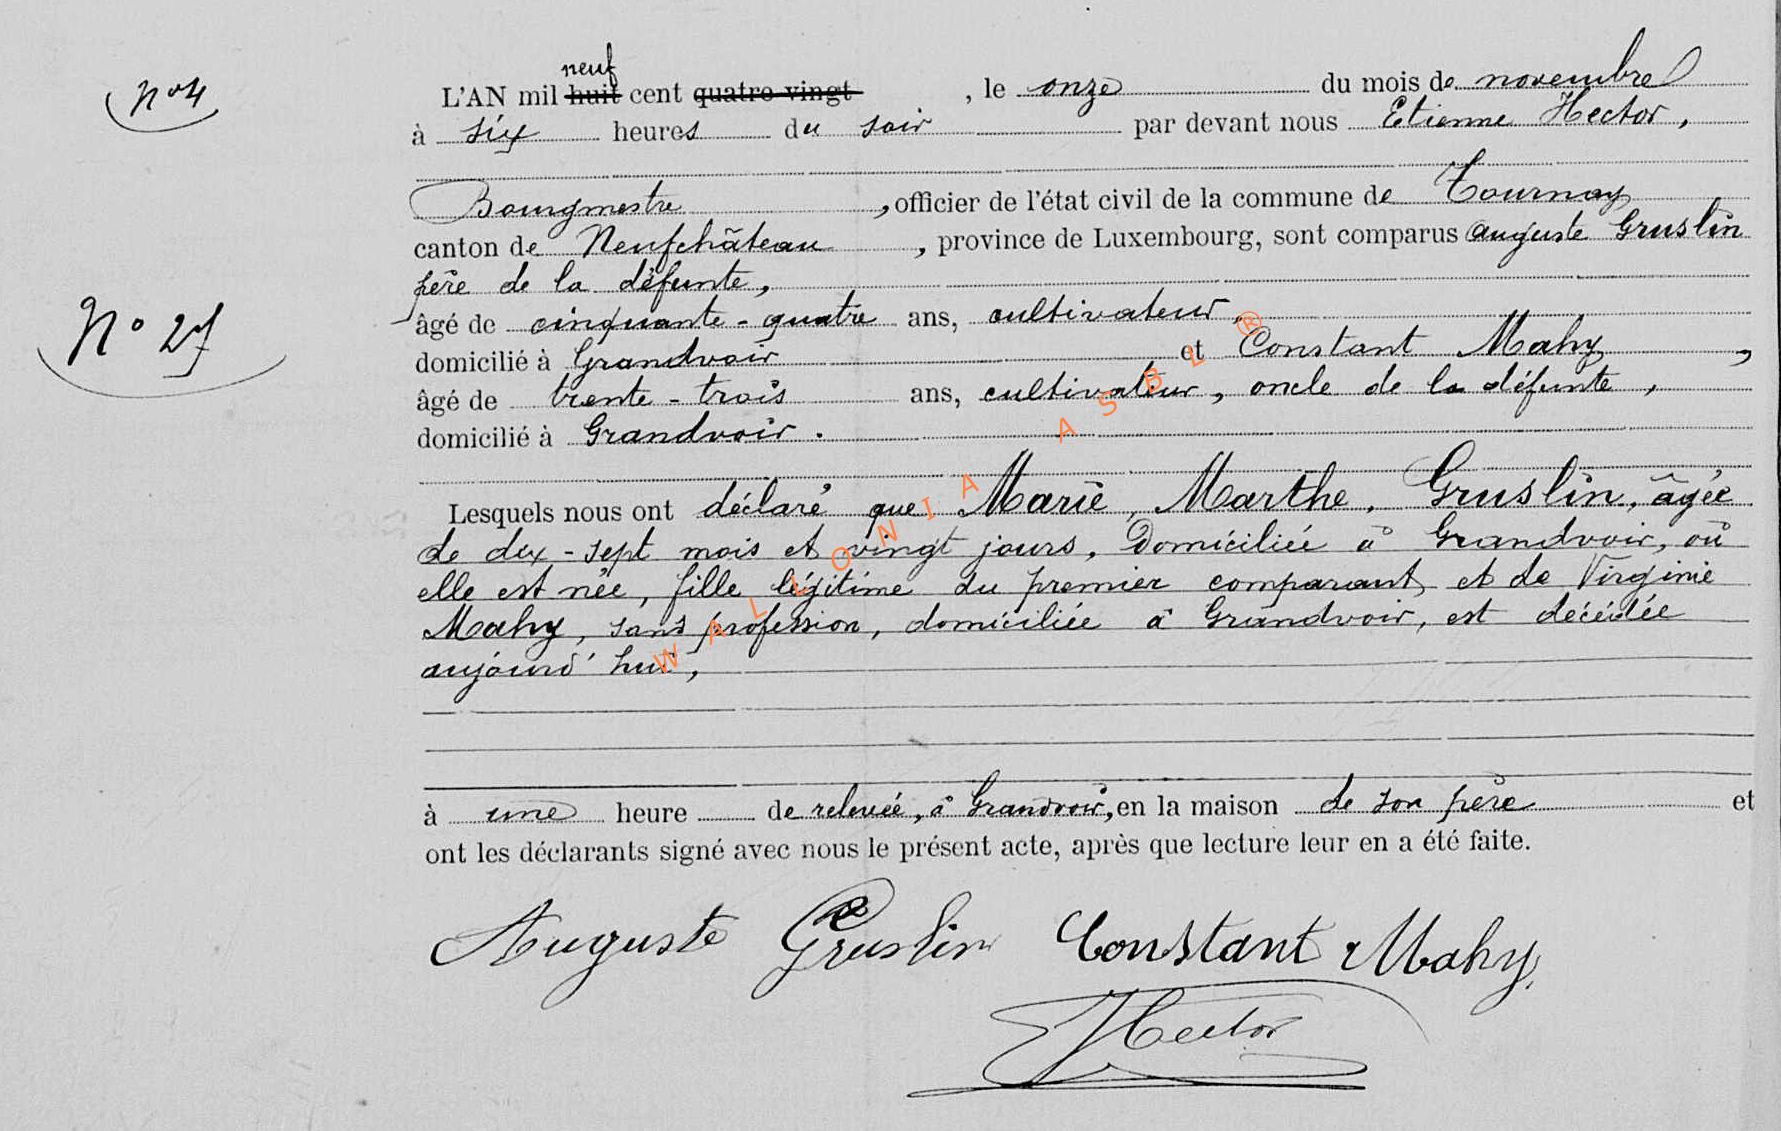 N° 4
L'AN mil huit neuf cent quatre-vingt , le onze du mois de novembre
à six heures du soir par devant nous Etienne Hector,
Bourgmestre , officier de l'état civil de la commune de Tournay
canton de Neufchâteau , province de Luxembourg, sont comparus Auguste Gruslin
père de la défunte,
N° 27
âgé de cinquante-quatre ans, cultivateur,
domicilié à Grandvoir et Constant Mahy ,
âgé de trente-trois ans, cultivateur, oncle de la défunte,
domicilié à Grandvoir.
Lesquels nous ont déclaré que Marie, Marthe, Gruslin, âgée
de dix-sept mois et vingt jours, domiciliée à Grandvoir, où
elle est née, fille légitime du premier comparant et de Virginie
Mahy, sans profession, domiciliée à Grandvoir, est décédée
aujourd'hui,
à une heure de relevée, à Grandvoir, en la maison de son père et
ont les déclarants signé avec nous le présent acte, après que lecture leur en a été faite.
Auguste Gruslin Constant Mahy
EHector
WALLONIA ASBL ®